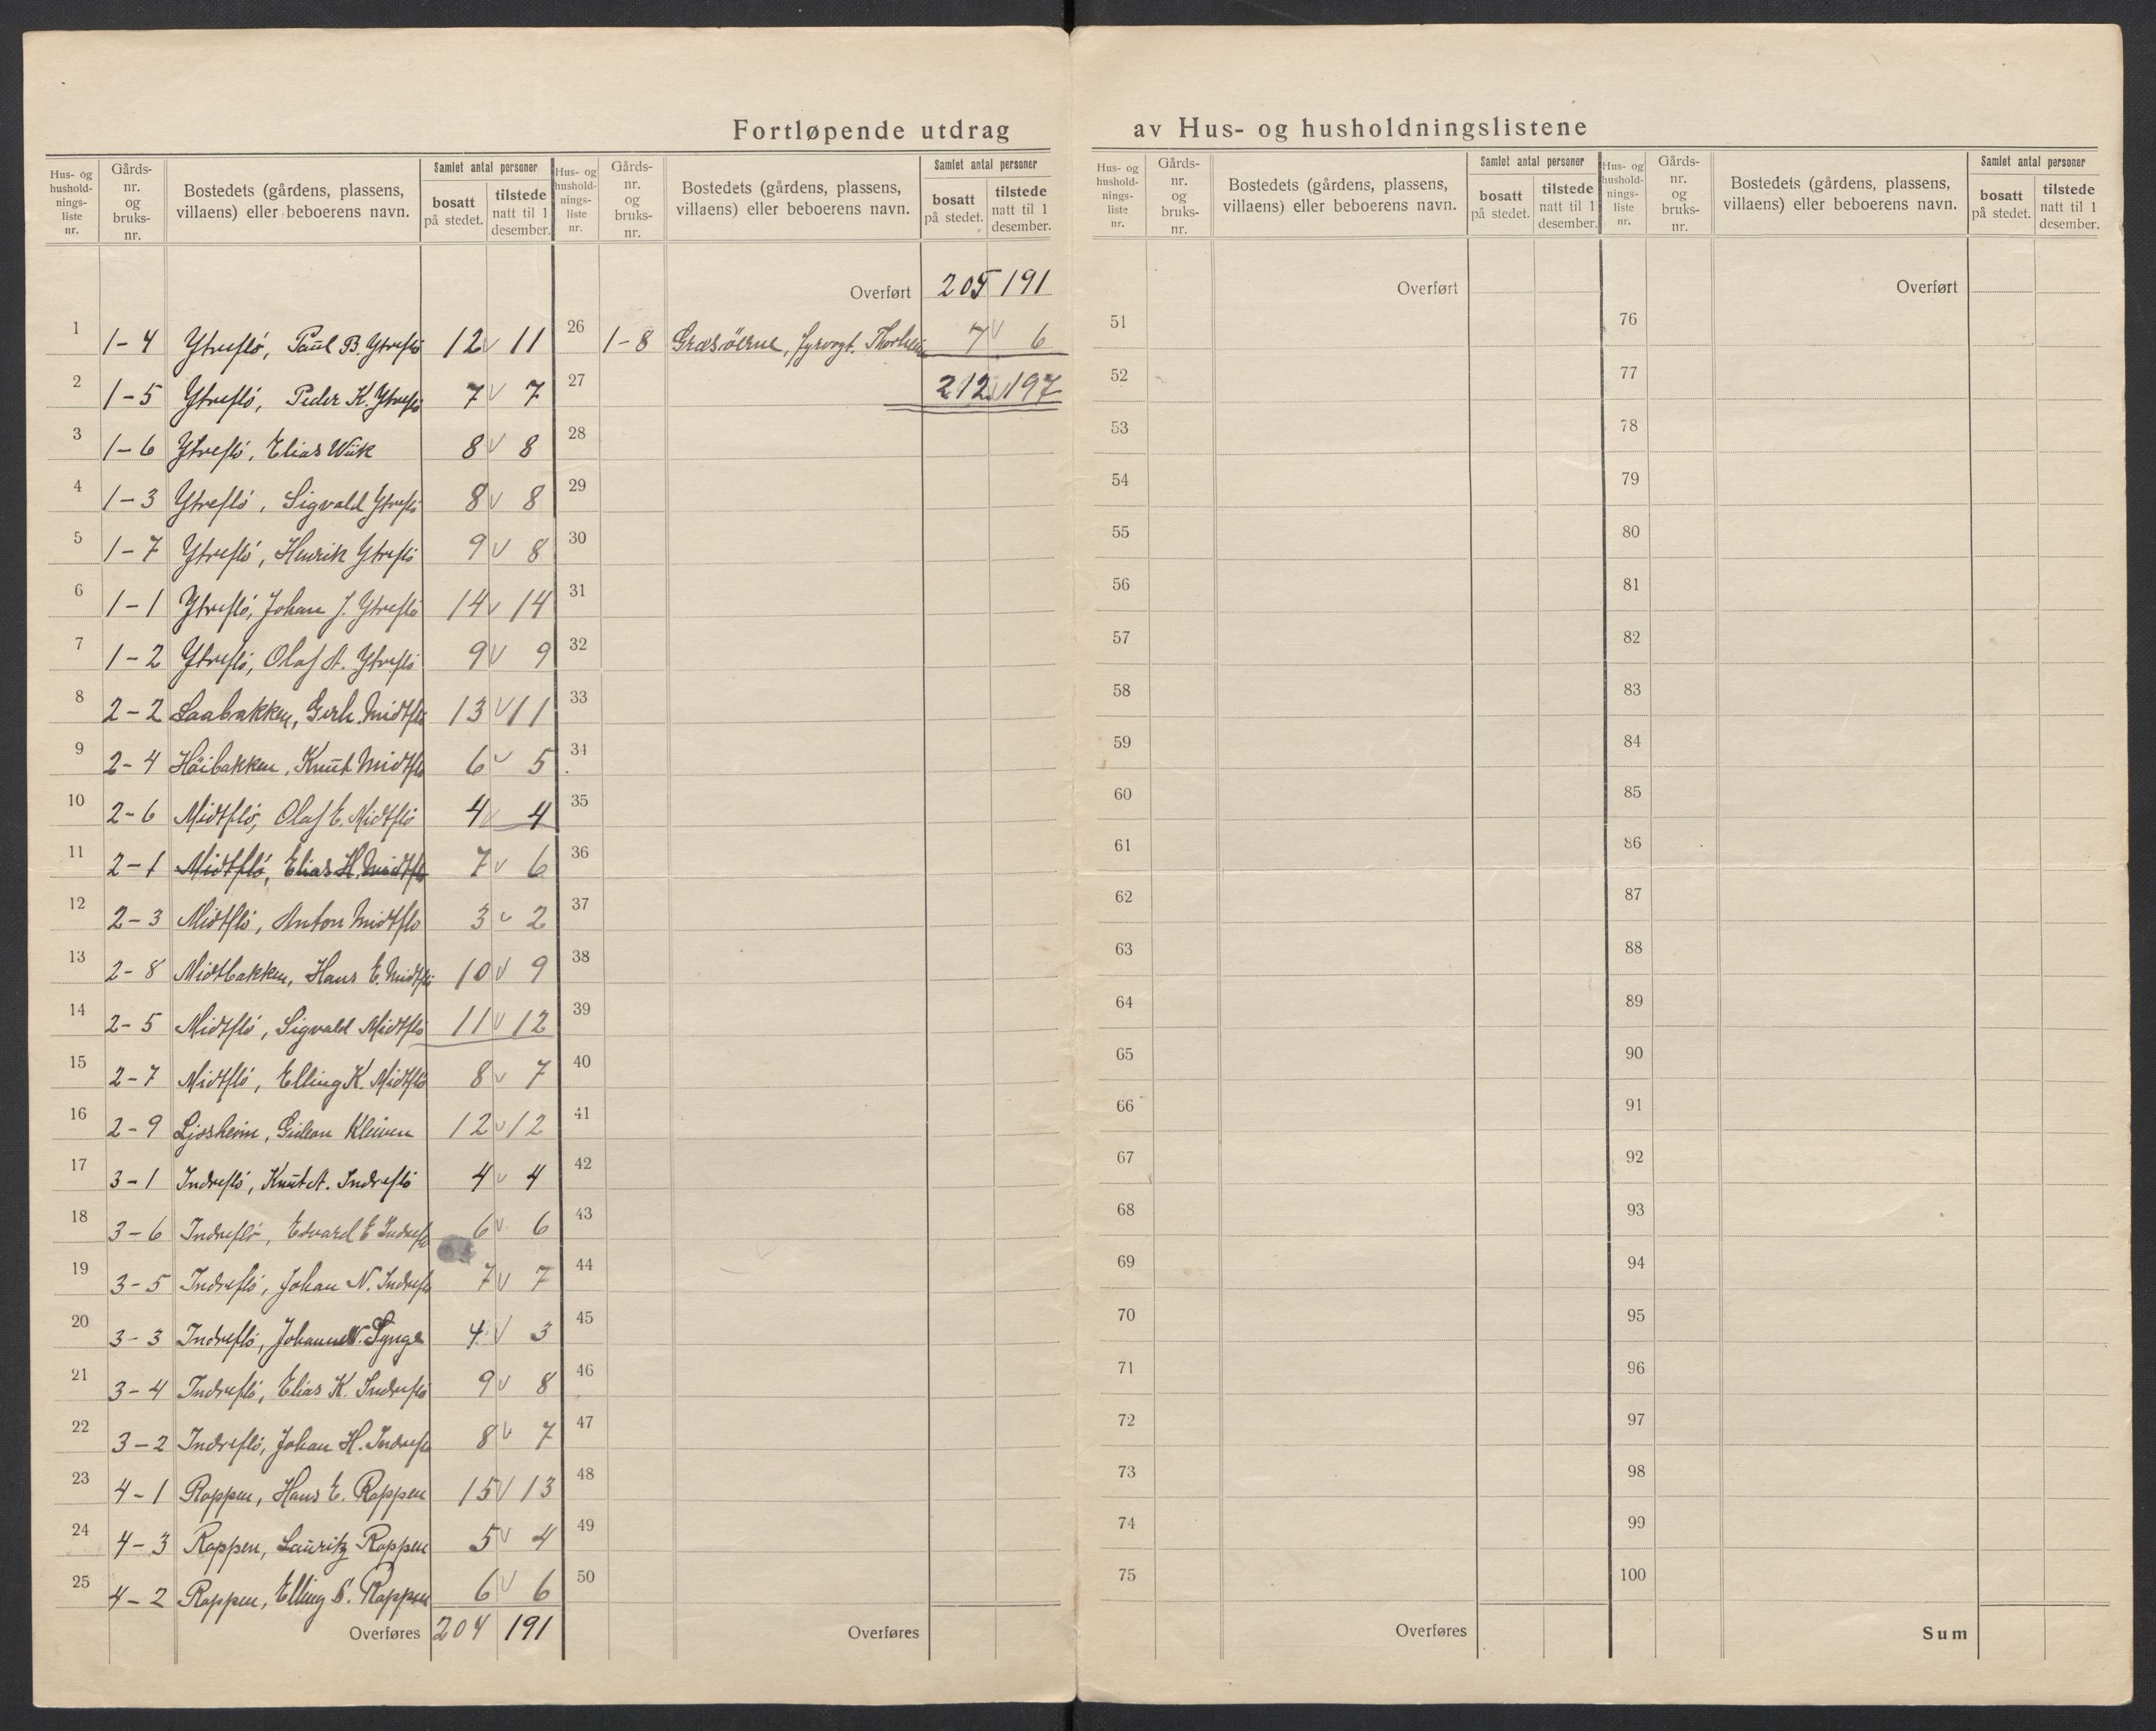 Fortløpende utdrag av Hus- og husholdningslistene
Hus- og hushold-nings-liste nr.
Gårds-nr. og bruks-nr.
Bostedets (gårdens, plassens, villaens) eller beboerens navn.
Samlet antal personer
bosatt på stedet.
tilstede natt til 1 desember.
1 1-4 Ytreflö, Paul B. Ytreflö 12 v 11
2 1-5 Ytreflö, Peder K. Ytreflö 7 v 7
3 1-6 Ytreflö, Elias Wiik 8 v 8
4 1-3 Ytreflö, Sigvald Ytreflö 8 v 8
5 1-7 Ytreflö, Henrik Ytreflö 9 v 8
6 1-1 Ytreflö, Johan J. Ytreflö 14 v 14
7 1-2 Ytreflö, Olaf A. Ytreflö 9 v 9
8 2-2 Laabakken, Gerh. Midtflö 13 v 11
9 2-4 Höibakken, Knut Midtflö 6 v 5
10 2-6 Midtflö, Olaf E. Midtflö 4 v 4
11 2-1 Midtflö, Elias H. Midtflö 7 v 6
12 2-3 Midtflö, Anton Midtflö 3 v 2
13 2-8 Midtbakken, Hans E. Midtflö 10 v 9
14 2-5 Midtflö, Sigvald Midtflö 11 v 12
15 2-7 Midtflö, Elling K. Midtflö 8 v 7
16 2-9 Ljosheim, Gideon Kleiven 12 v 12
17 3-1 Indreflö, Knut A. Indreflö 4 v 4
18 3-6 Indreflö, Edvard E Indreflö 6 v 6
19 3-5 Indreflö, Johan N. Indreflö 7 v 7
20 3-3 Indreflö, Johannes N. Synge 4 v 3
21 3-4 Indreflö, Elias K. Indreflö 9 v 8
22 3-2 Indreflö, Johan H. Indreflö 8 v 7
23 4-1 Roppen, Hans E. Roppen 15 v 13
24 4-3 Roppen, Lauritz Roppen 5 v 4
25 4-2 Roppen, Elling S. Roppen 6 v 6
Overføres 204 191
Hus- og hushold-nings-liste nr.
Gårds-nr. og bruks-nr.
Bostedets (gårdens, plassens, villaens) eller beboerens navn.
Samlet antal personer
bosatt på stedet.
tilstede natt til 1 desember.
Overført 205 191
26 1-8 Græsöerne, fyrvogt. 7 v 6
27 212 v 197
28
29
30
31
32
33
34
35
36
37
38
39
40
41
42
43
44
45
46
47
48
49
50
Overføres
Hus- og hushold-nings-liste nr.
Gårds-nr. og bruks-nr.
Bostedets (gårdens, plassens, villaens) eller beboerens navn.
Samlet antal personer
bosatt på stedet.
tilstede natt til 1 desember.
Overført
51
52
53
54
55
56
57
58
59
60
61
62
63
64
65
66
67
68
69
70
71
72
73
74
75
Overføres
Hus- og hushold-nings-liste nr.
Gårds-nr. og bruks-nr.
Bostedets (gårdens, plassens, villaens) eller beboerens navn.
Samlet antal personer
bosatt på stedet.
tilstede natt til 1 desember.
Overført
76
77
78
79
80
81
82
83
84
85
86
87
88
89
90
91
92
93
94
95
96
97
98
99
100
Sum